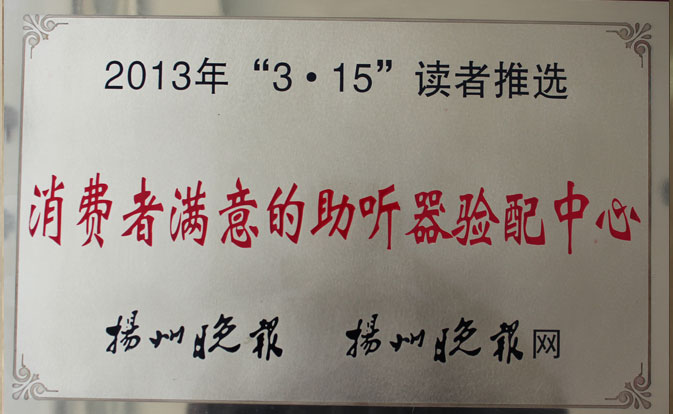 2013年“3·15”读者推选
消费者满意的助听器验配中心
揚州晚報 揚州晚報网